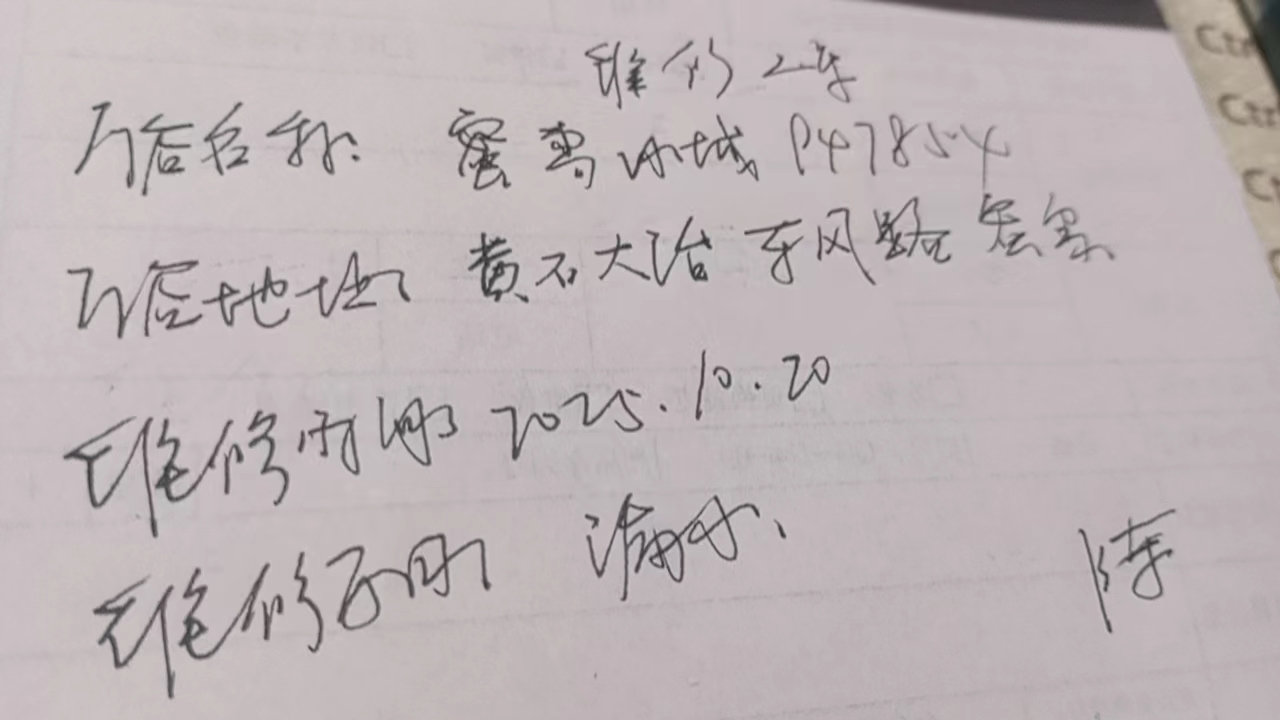 维修2年
门店名称: 蜜雪冰城 P47854
门店地址 黄石大冶东风路
维修时间 2025.10.20
维修 漏水、
陈
Ctr
Ctr